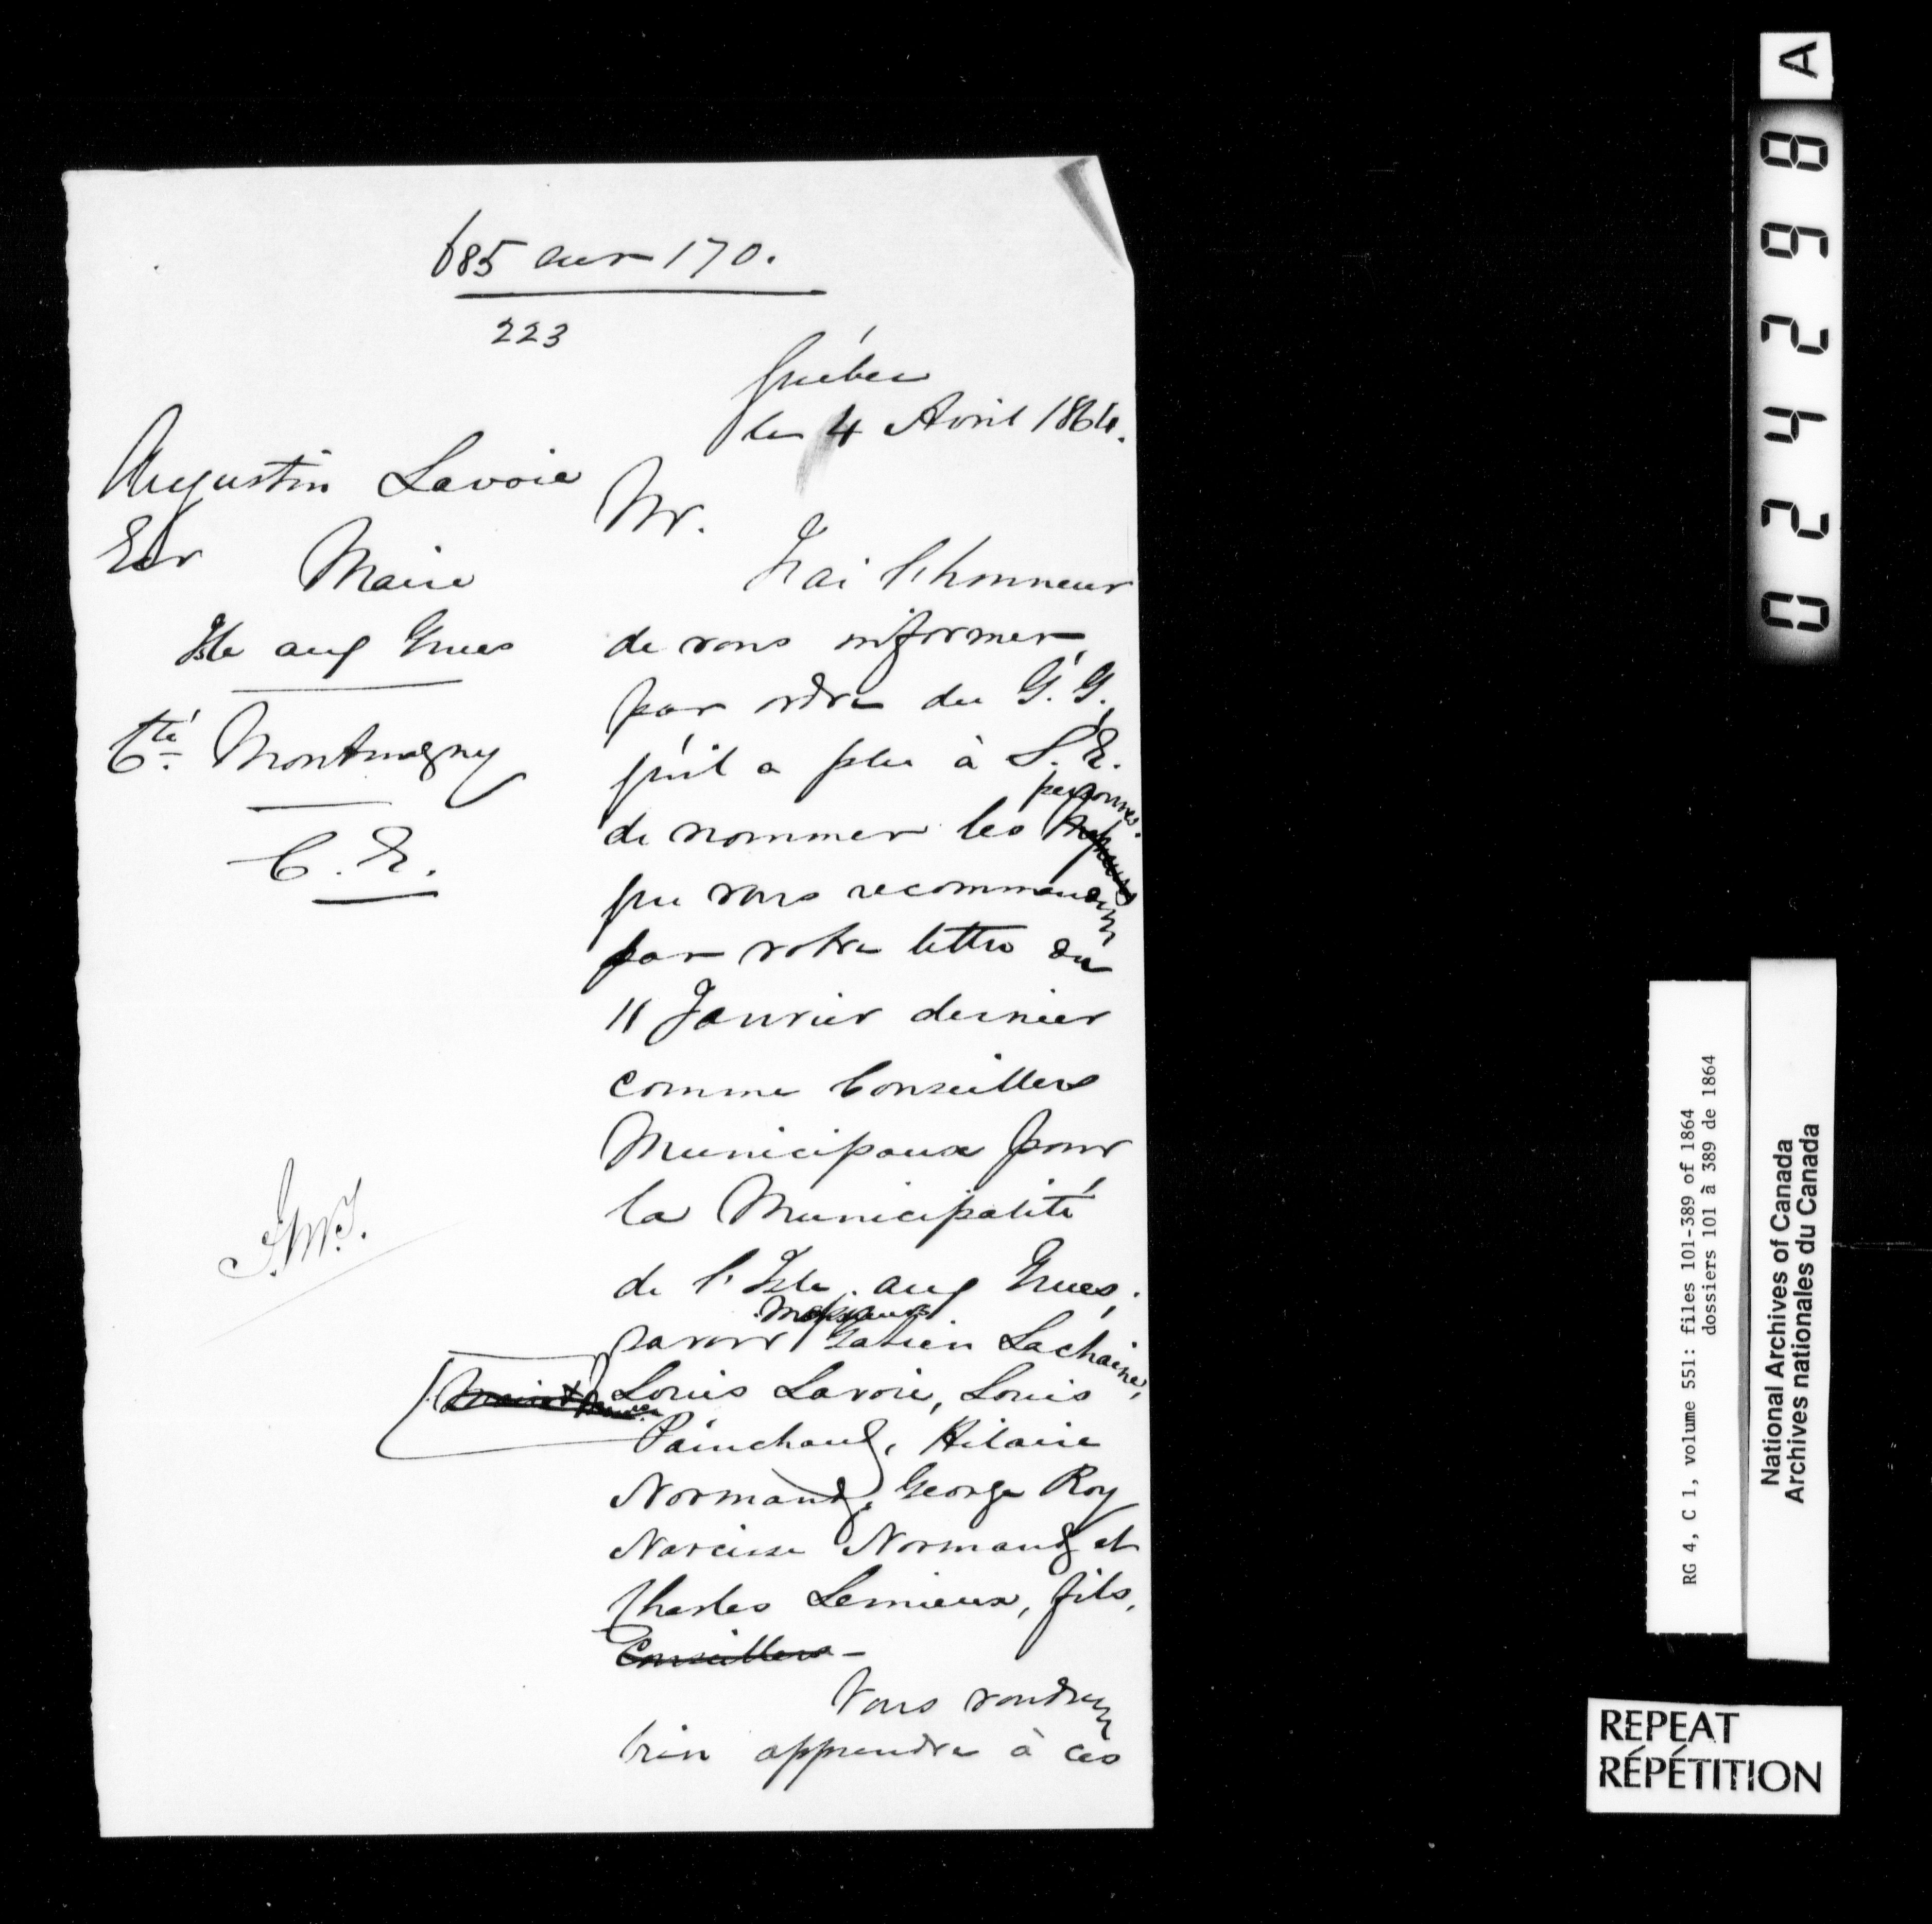 685 sur 170.
223
Québec
le 4 Avril 1864.
Augustin Lavoie
Ecr Maire
Isle aux Grues
Cté Montmagny
C. E.
Mr.
J'ai l'honneur
de vous informer,
par ordre du G. G.,
qu'il a plu à S. E.
personnes
de nommer les Messieurs
que vous recommandez
par votre lettre du
11 Janvier dernier
comme Conseillers
Municipaux pour
la Municipalité
de l'Isle aux Grues,
Messieurs
savoir Gatien Lachaine,
Louis Lavoie, Louis
Painchaud, Hilaire
Normand, George Roy
Narcisse Normand et
Charles Lemieux, fils,
Conseillers -
Vous voudrez
bien apprendre à ces
024298 A
RG 4, C 1, volume 551: files 101-389 of 1864
dossiers 101 à 389 de 1864
National Archives of Canada
Archives nationales du Canada
REPEAT
RÉPÉTITION